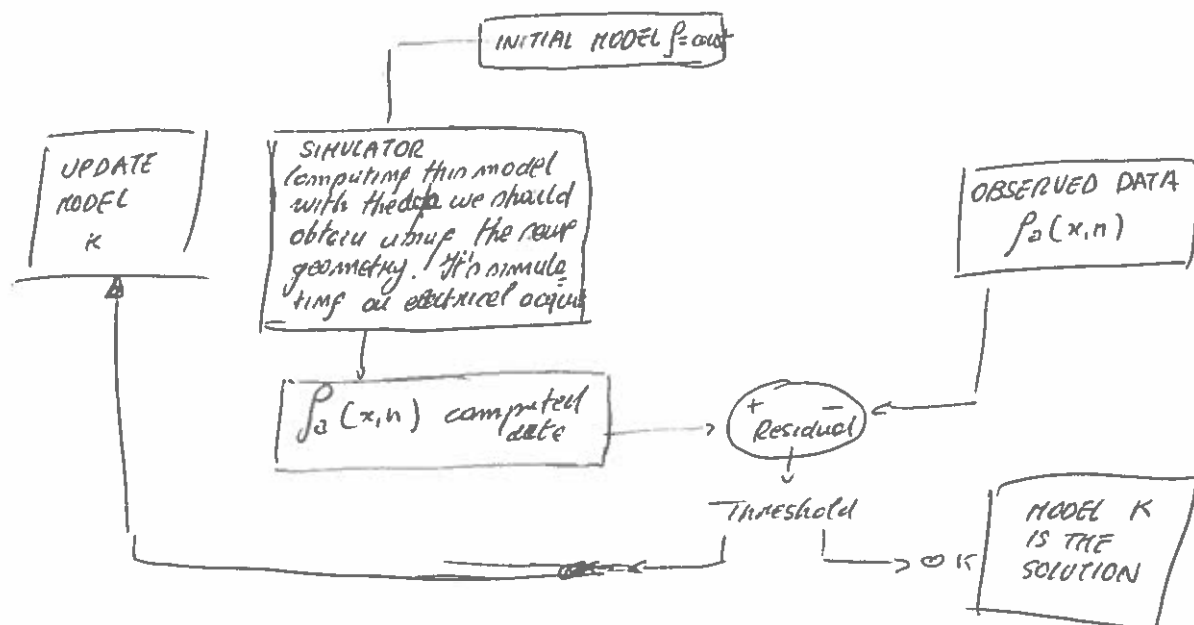 INITIAL MODEL ρ=cost
UPDATE
MODEL
K
SIMULATOR
Computing this model
with the we should
obtain using the same
geometry. It's simula
ting an electrical acquis
OBSERVED DATA
ρa(x,n)
ρa(x,n) computed
data
+ −
Residual
Threshold
OK
MODEL K
IS THE
SOLUTION